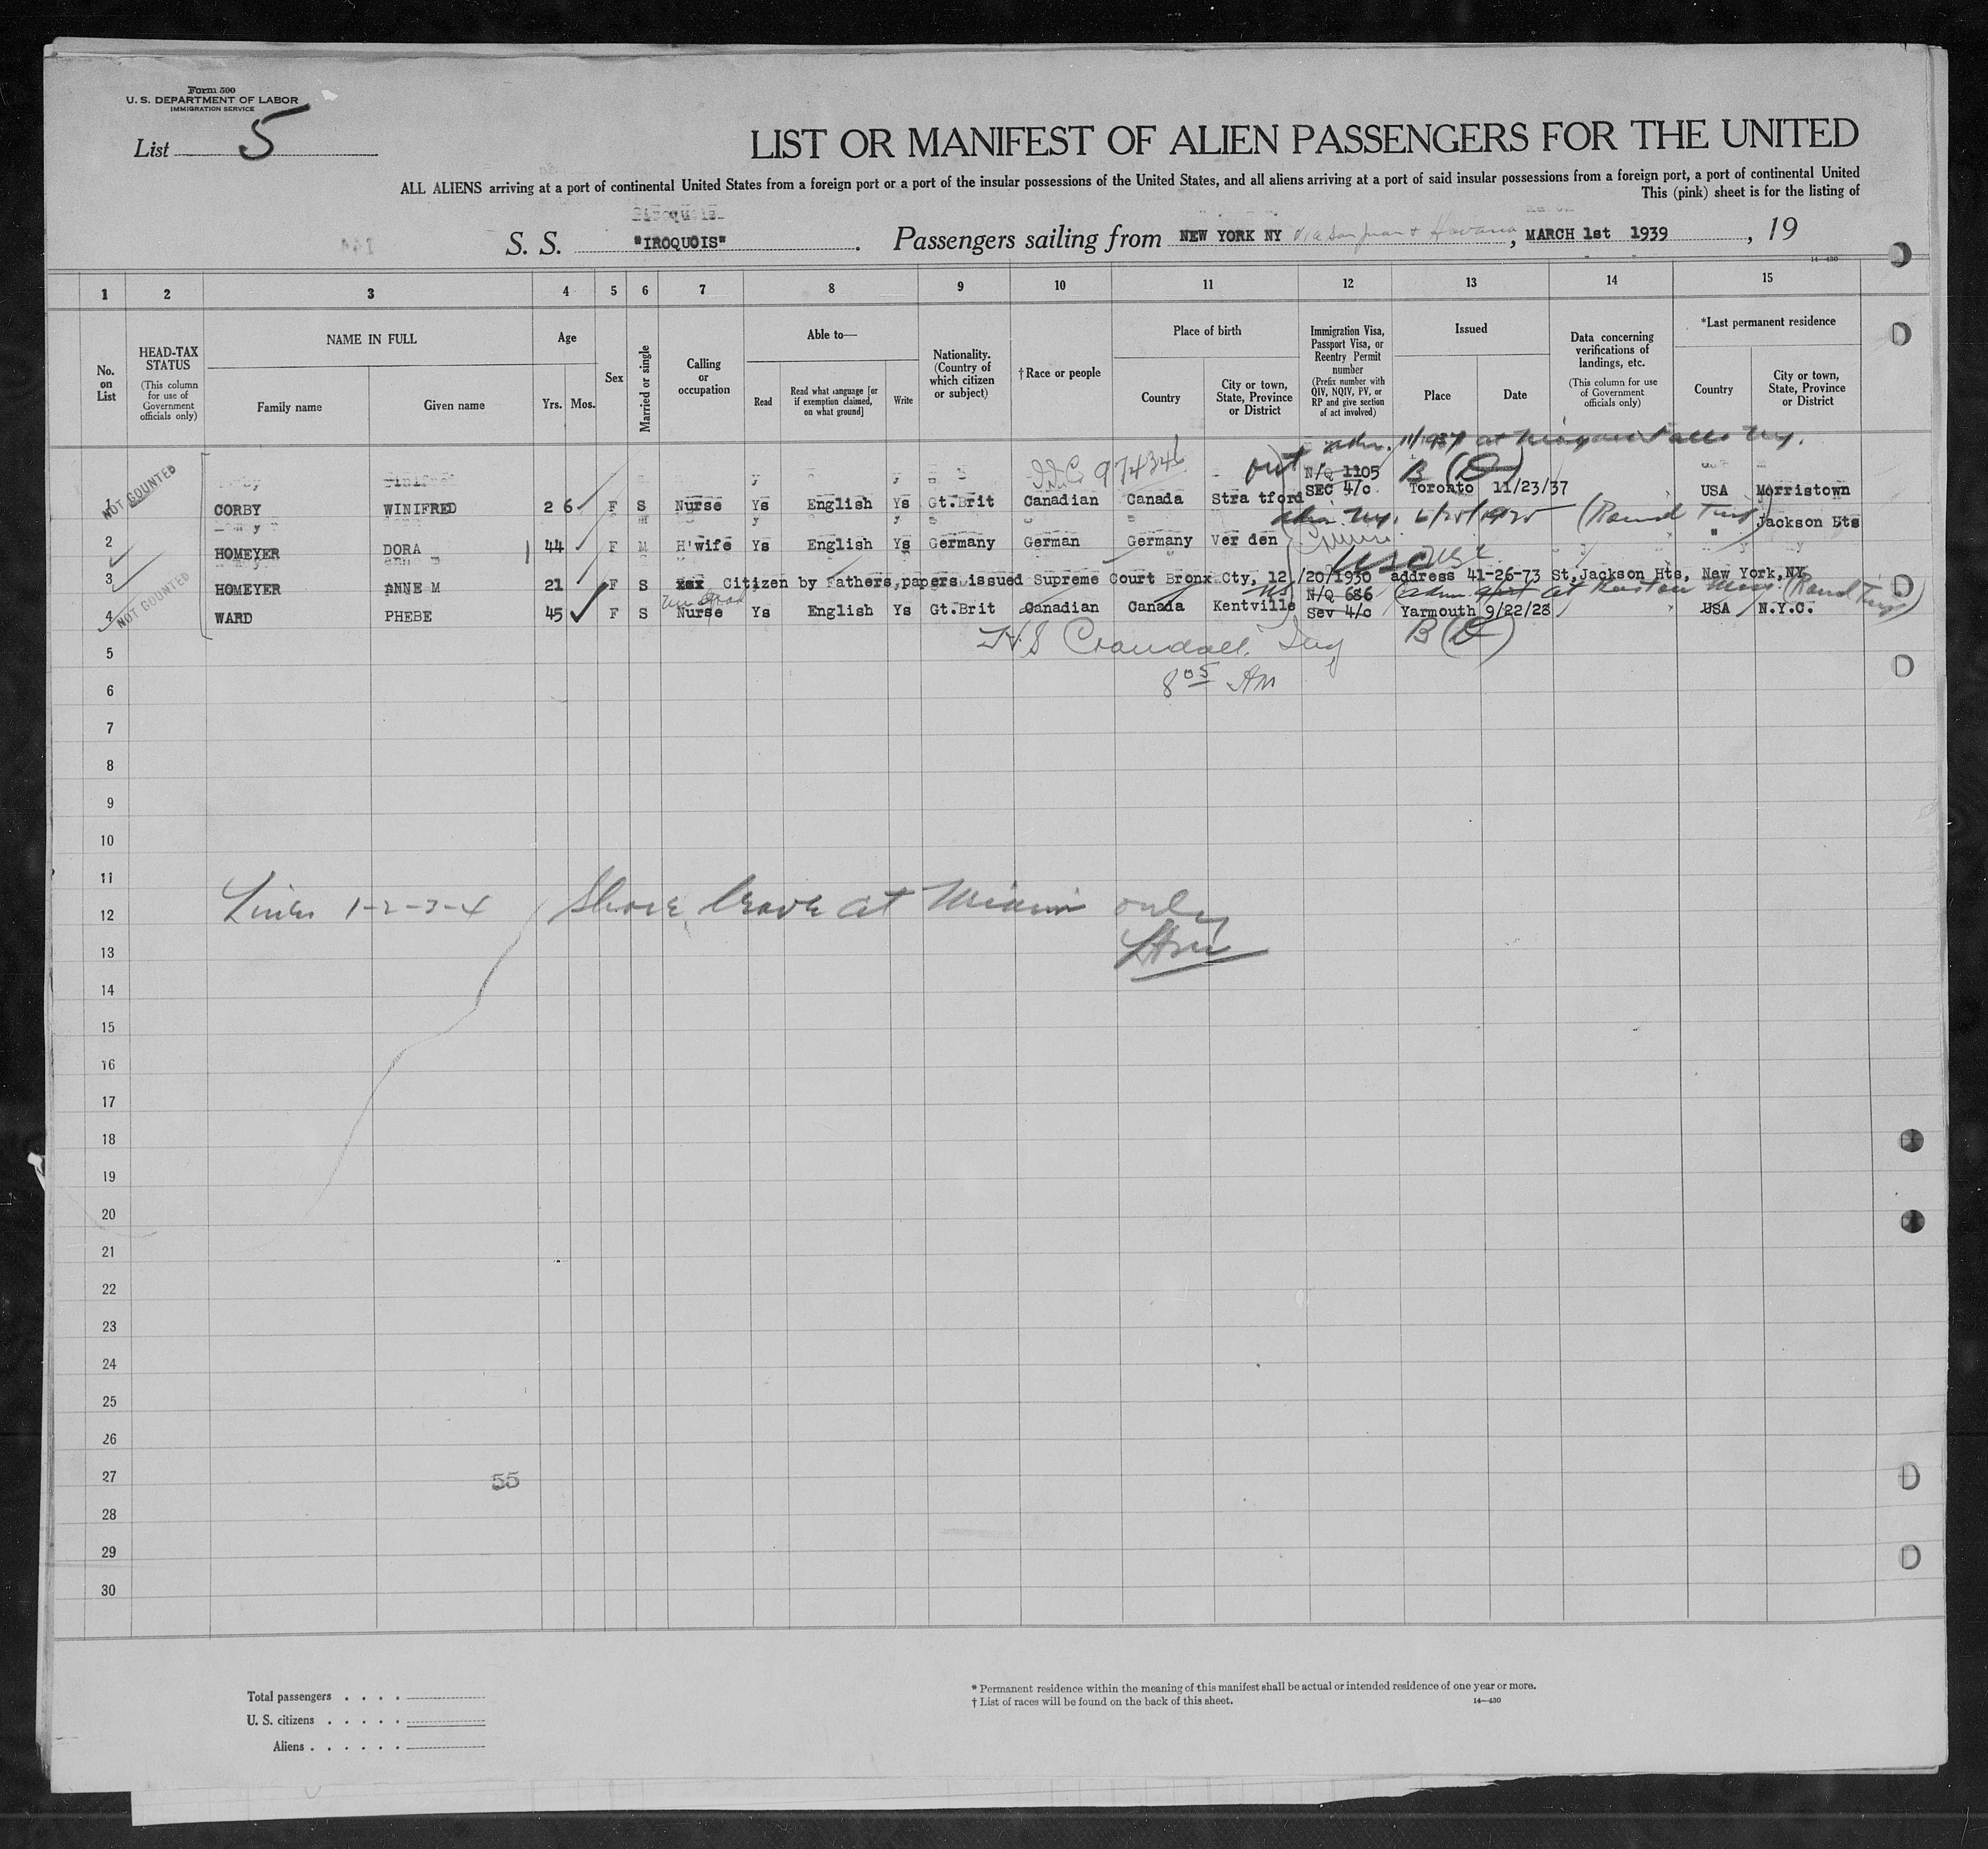 Form 500
U. S. DEPARTMENT OF LABOR
IMMIGRATION SERVICE
List 5
LIST OR MANIFEST OF ALIEN PASSENGERS FOR THE UNITED
ALL ALIENS arriving at a port of continental United States from a foreign port or a port of the insular possessions of the United States, and all aliens arriving at a port of said insular possessions from a foreign port, a port of continental United
This (pink) sheet is for the listing of
S. S. "IROQUOIS". Passengers sailing from NEW YORK NY via San Juan + Havana, MARCH 1st 1939, 19
14-430
1 2 3 4 5 6 7 8 9 10 11 12 13 14 15
No. on List
HEAD-TAX STATUS
(This column for use of Government officials only)
NAME IN FULL
Family name
Given name
Age
Yrs. Mos.
Sex
Married or single
Calling or occupation
Able to—
Read
Read what language [or if exemption claimed, on what ground]
Write
Nationality. (Country of which citizen or subject)
†Race or people
Place of birth
Country
City or town, State, Province or District
Immigration Visa, Passport Visa, or Reentry Permit number
(Prefix number with QIV, NQIV, PV, or RP and give section of act involved)
Issued
Place
Date
Data concerning verifications of landings, etc.
(This column for use of Government officials only)
*Last permanent residence
Country
City or town, State, Province or District
974346
out
N/Q 1105
B
NOT COUNTED
1 CORBY WINIFRED 26 F S Nurse Ys English Ys Gt.Brit Canadian Canada Stra tford SEC 4/c Toronto 11/23/37 USA Morristown
(Round Trip)
2 HOMEYER DORA 44 F M H'wife Ys English Ys Germany German Germany Ver den " Jackson Hts
3 HOMEYER ANNE M 21 F S xxx Citizen by Fathers papers issued Supreme Court Bronx Cty, 12/20/1930 address 41-26-73 St, Jackson Hts, New York, NY
NOT COUNTED
NS N/Q 686 (Round Trip)
4 WARD PHEBE 45 F S Nurse Ys English Ys Gt.Brit Canadian Canada Kentville Sev 4/c Yarmouth 9/22/28 USA N.Y.C.
H S Crandall, Insp
B
8 05 AM
5
6
7
8
9
10
11
12 Lines 1-2-3-4 Shore leave at Miami only
13
14
15
16
17
18
19
20
21
22
23
24
25
26
27
55
28
29
30
Total passengers . . . .
U. S. citizens . . . . .
Aliens . . . . . .
* Permanent residence within the meaning of this manifest shall be actual or intended residence of one year or more.
† List of races will be found on the back of this sheet.
14-430